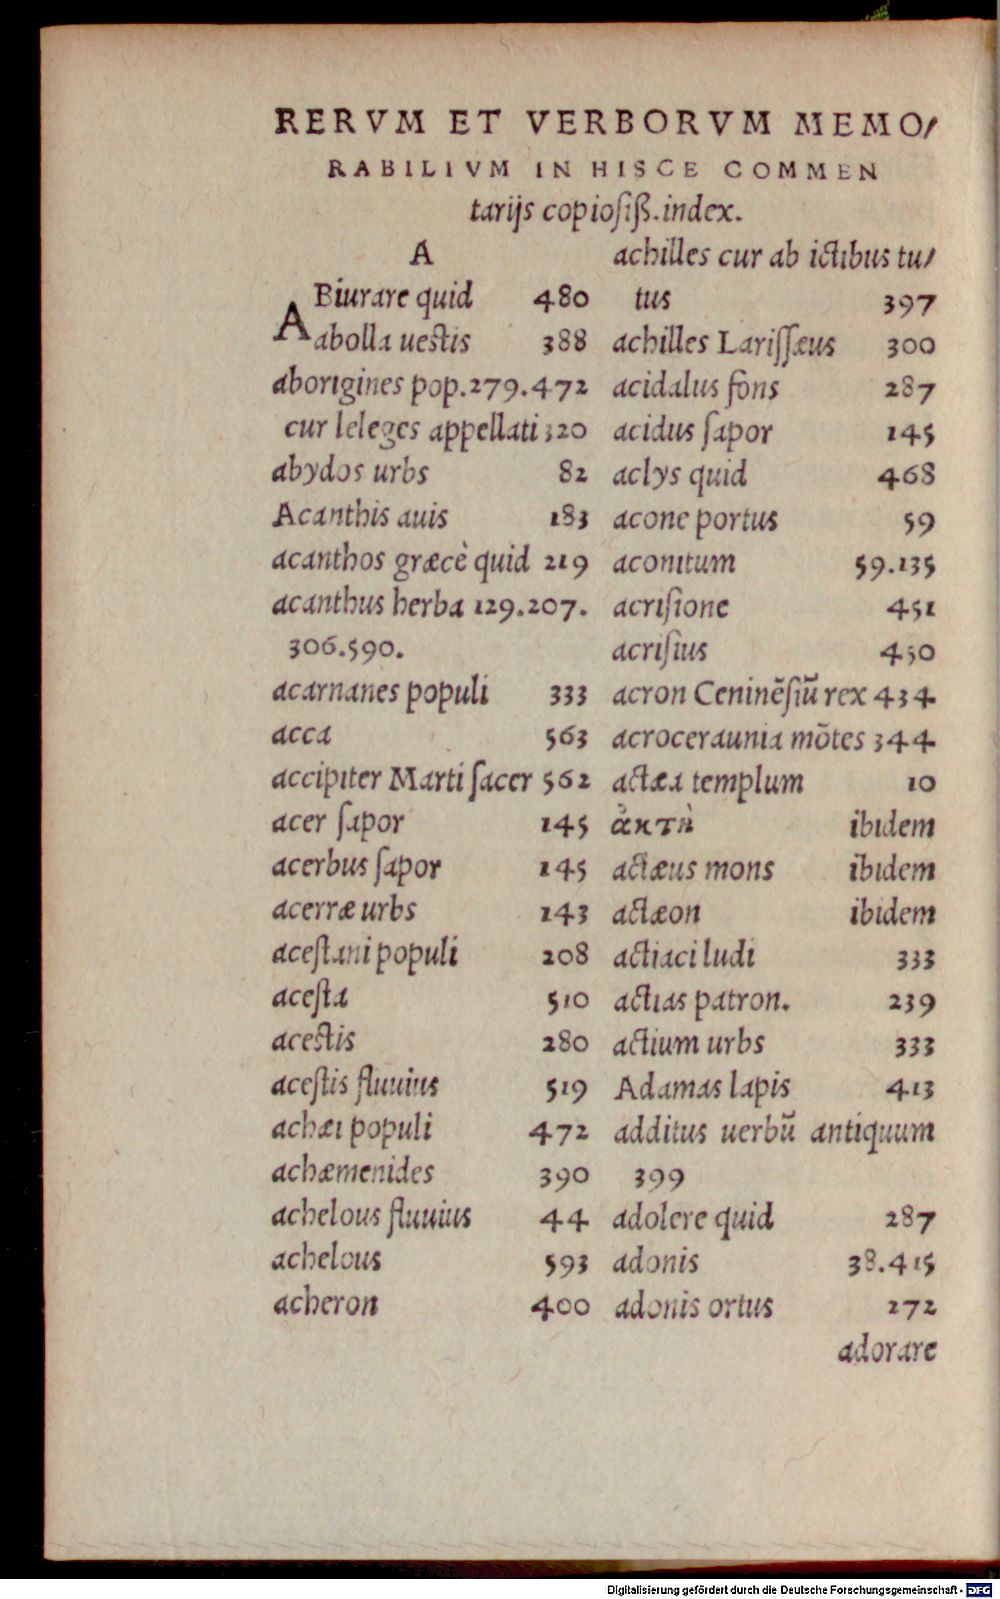 RERVM ET VERBORVM MEMO/
RABILIVM IN HISCE COMMEN
tarijs copiosiß.index.
A
ABiurare quid 480
abolla uestis 388
aborigines pop.279.472
cur leleges appellati 320
abydos urbs 82
Acanthis auis 183
acanthos græcè quid 219
acanthus herba 129.207.
306.590.
acarnanes populi 333
acca 563
accipiter Marti ſacer 562
acer ſapor 145
acerbus ſapor 145
acerræ urbs 143
aceſtani populi 208
aceſta 510
acestis 280
aceſtis fluuius 519
achæi populi 472
achæmenides 390
achelous fluuius 44
achelous 593
acheron 400
achilles cur ab ictibus tu/
tus 397
achilles Lariſſæus 300
acidalus fons 287
acidus ſapor 145
aclys quid 468
acone portus 59
aconitum 59.135
acriſione 451
acriſius 450
acron Ceninēſiū rex 434
acroceraunia mōtes 344
actæa templum 10
ἀκτὴ ibidem
actæus mons ibidem
actæon ibidem
actiaci ludi 333
actias patron. 239
actium urbs 333
Adamas lapis 413
additus uerbū antiquum
399
adolere quid 287
adonis 38.415
adonis ortus 272
adorare
Digitalisierung gefördert durch die Deutsche Forschungsgemeinschaft - DFG